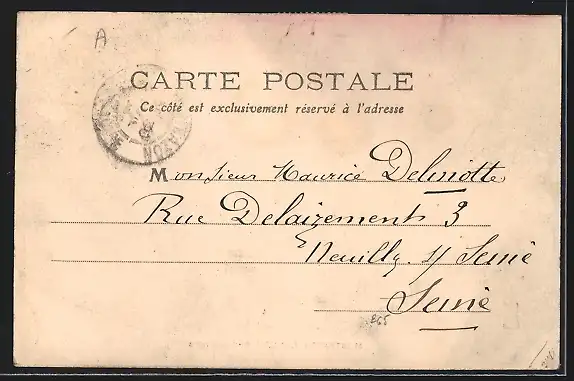 A
CARTE POSTALE
Ce côté est exclusivement réservé à l'adresse
Monsieur Maurice Delmotte
Rue Delaizement 3
Neuilly s/ Seine
Seine